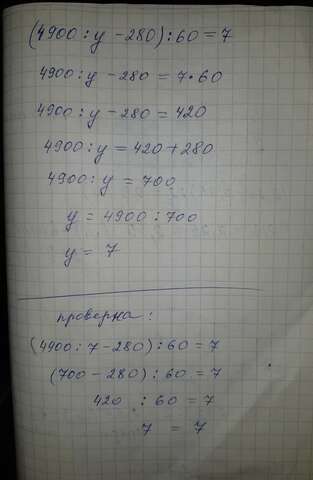 (4900 : y - 280) : 60 = 7
4900 : y - 280 = 7 • 60
4900 : y - 280 = 420
4900 : y = 420 + 280
4900 : y = 700
y = 4900 : 700
y = 7
проверка :
(4900 : 7 - 280) : 60 = 7
(700 - 280) : 60 = 7
420 : 60 = 7
7 = 7